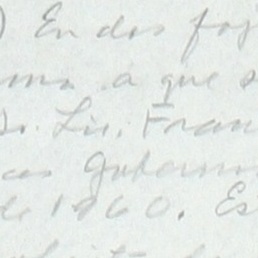 ) En dos foj
ma. a que s
Lic. Fran
cas Gubern
de 1960. Es